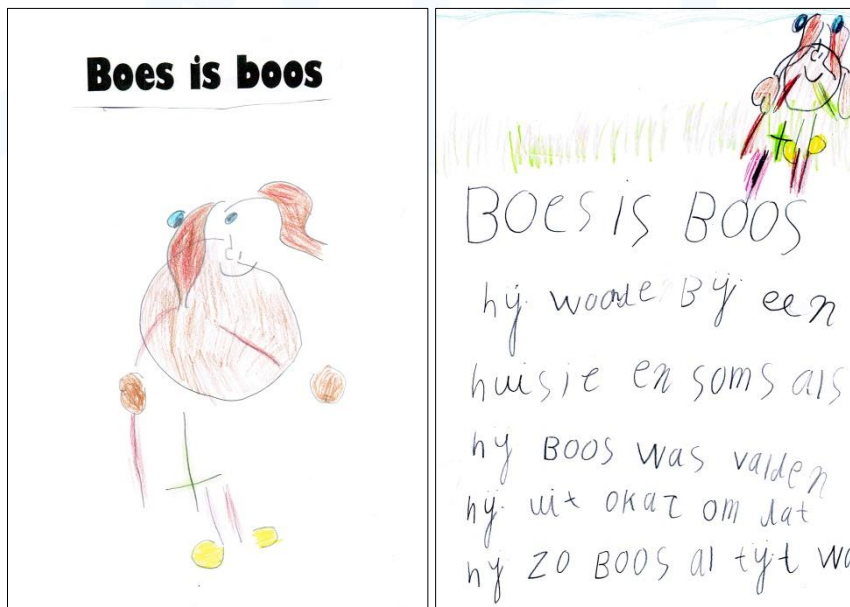 Boes is boos
BOES is BOOS
hij woonde Bij een
huisje en soms als
hij BOOS was valden
hij uit okaz om dat
hij ZO BOOS al tijt wa